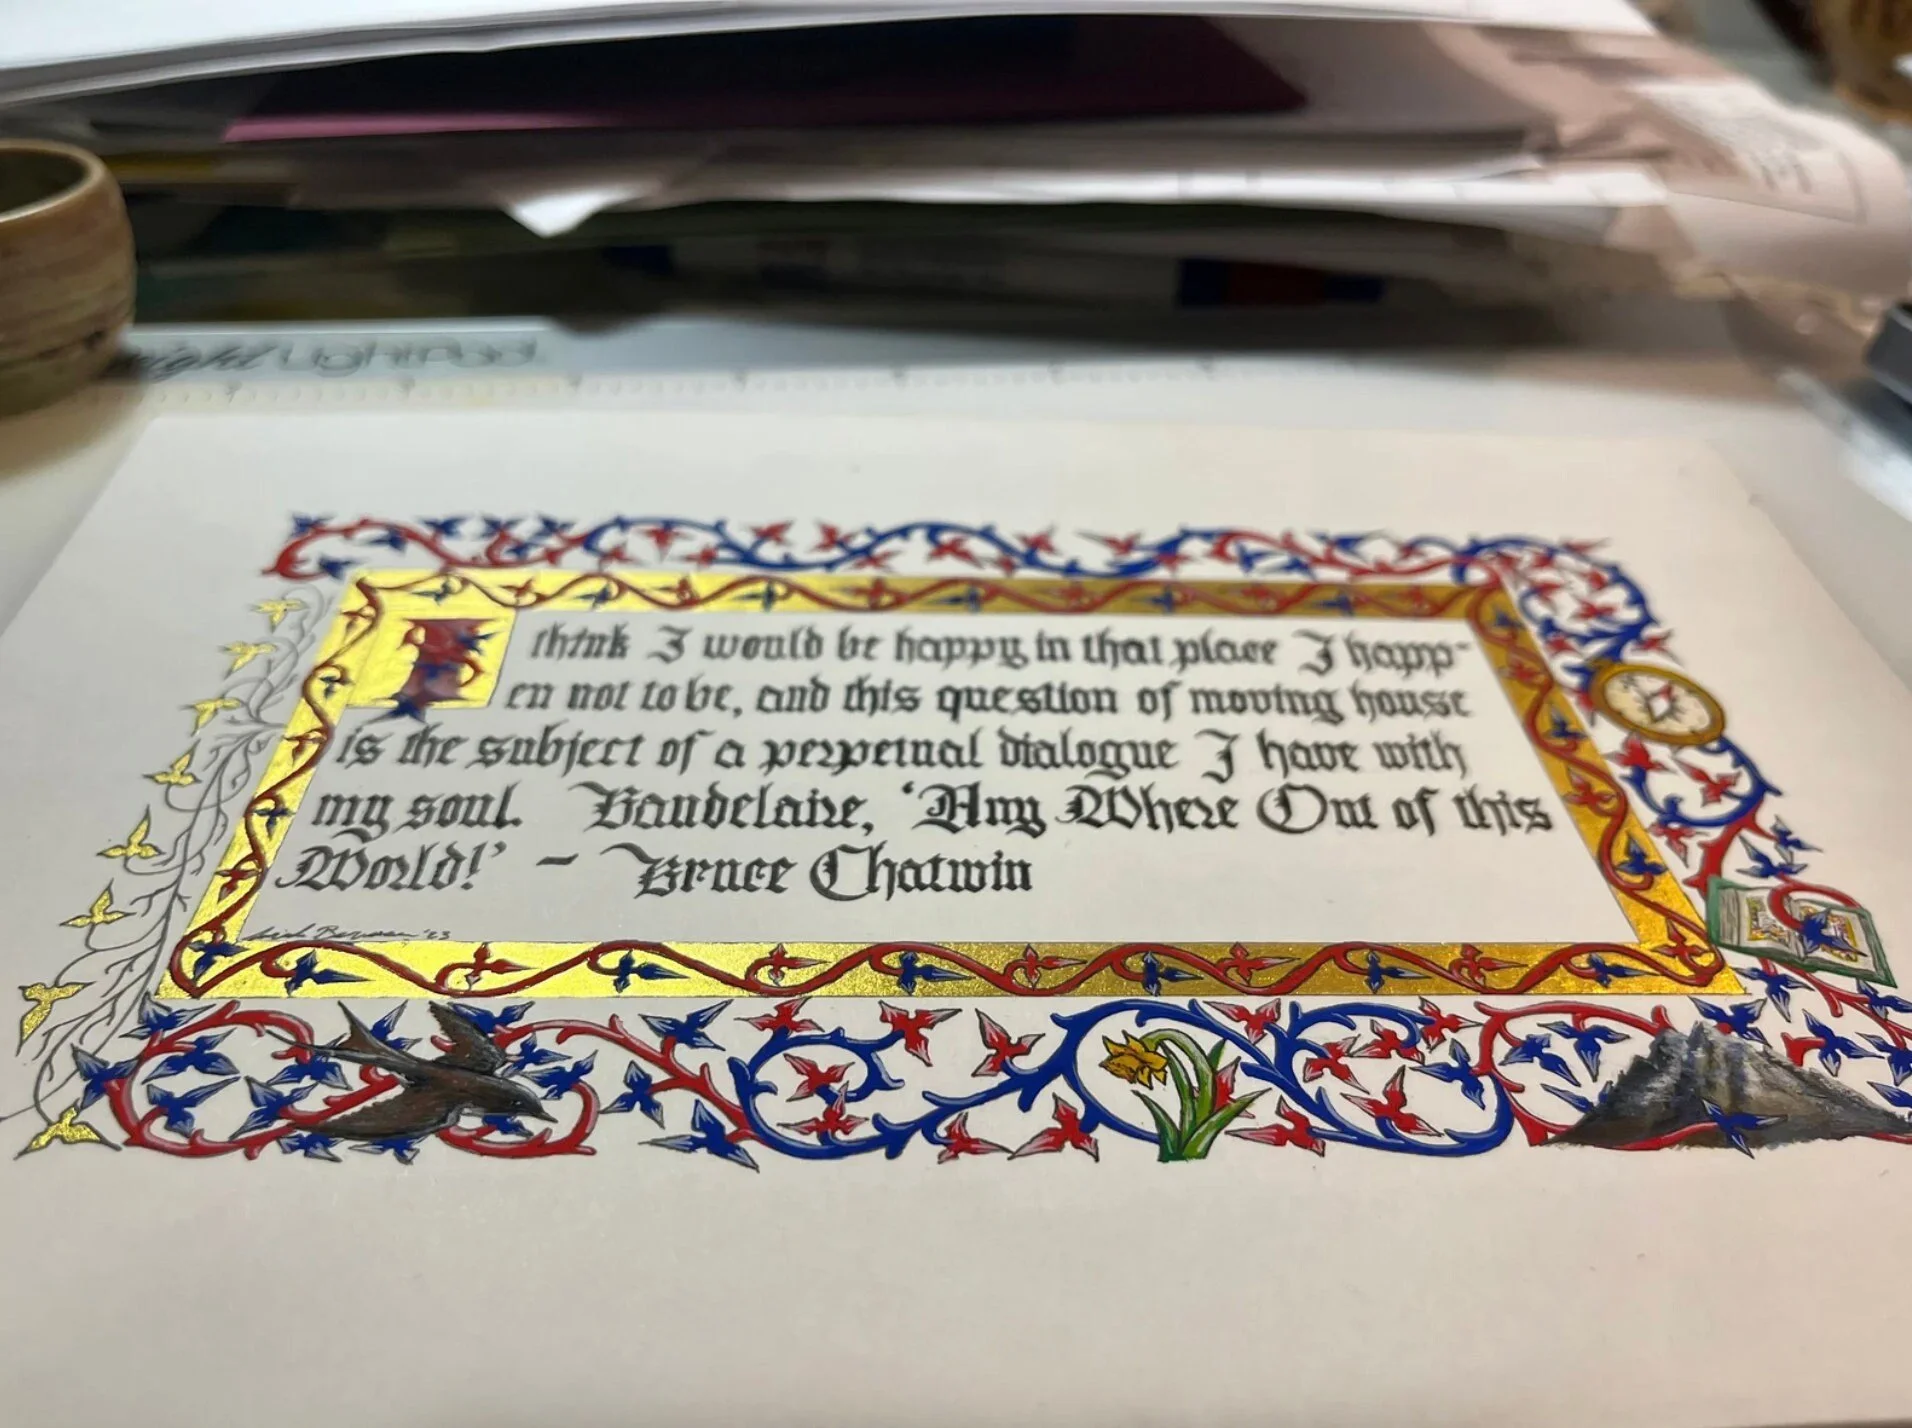 Light Pad
I think I would be happy in that place I happ-
en not to be, and this question of moving house
is the subject of a perpetual dialogue I have with
my soul. Baudelaire, 'Any Where Out of this
World!' - Bruce Chatwin
'23